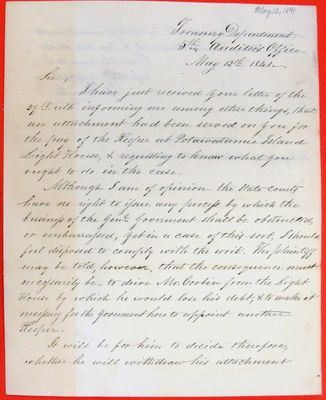 May 12, 1841
Treasury Department
5th Auditor's Office
May 12th 1841.
Sir,
I have just received your letter of the
29th ulto informing me among other things, that
an attachment had been served on you for
the pay of the Keeper at Island
Light House, & requesting to know what you
ought to do in the case.
Although I am of opinion the State Courts
have no right to issue any process by which the
business of the Genl. Goverment shall be obstructed,
or embarrassed, yet in a case of this sort, I should
feel disposed to comply with the writ. The plaintiff
may be told, however, that the consequence must
necessarily be to drive Mr. Corbin from the Light
House by which he would lose his debt, & to make it
necessary for the Government here to appoint another
Keeper.
It will be for him to decide therefore,
whether he will withdraw his attachment